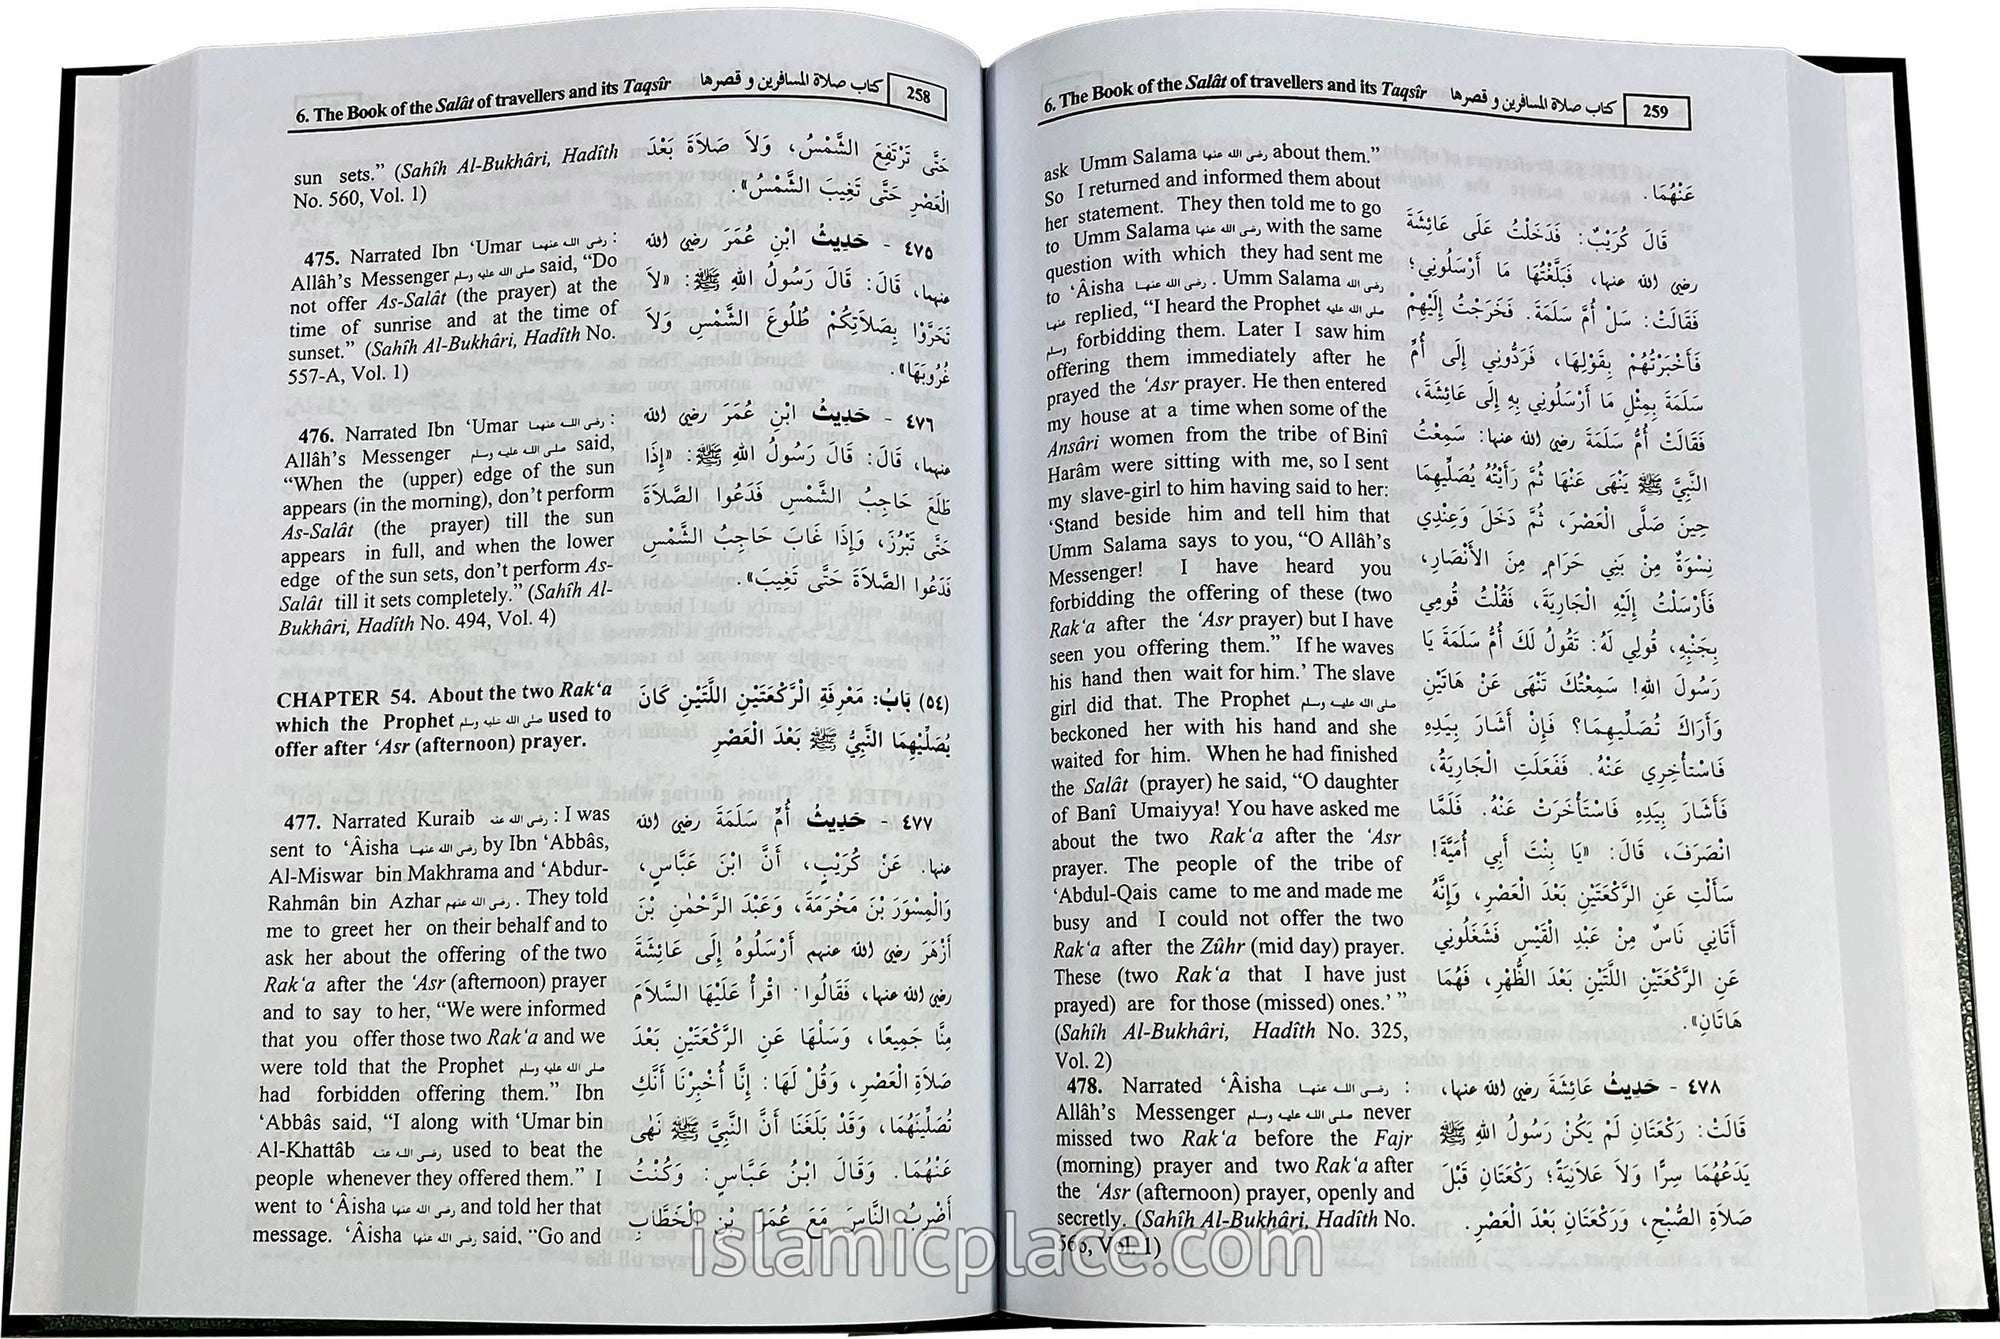 6. The Book of the Salât of travellers and its Taqsîr كتاب صلاة المسافرين و قصرها 258
sun sets.” (Sahîh Al-Bukhâri, Hadîth
No. 560, Vol. 1)
475. Narrated Ibn ‘Umar رضى الله عنهما :
Allâh’s Messenger صلى الله عليه وسلم said, “Do
not offer As-Salât (the prayer) at the
time of sunrise and at the time of
sunset.” (Sahîh Al-Bukhâri, Hadîth No.
557-A, Vol. 1)
476. Narrated Ibn ‘Umar رضى الله عنهما :
Allâh’s Messenger صلى الله عليه وسلم said,
“When the (upper) edge of the sun
appears (in the morning), don’t perform
As-Salât (the prayer) till the sun
appears in full, and when the lower
edge of the sun sets, don’t perform As-
Salât till it sets completely.” (Sahîh Al-
Bukhâri, Hadîth No. 494, Vol. 4)
CHAPTER 54. About the two Rak‘a
which the Prophet صلى الله عليه وسلم used to
offer after ‘Asr (afternoon) prayer.
477. Narrated Kuraib رضى الله عنه : I was
sent to ‘Âisha رضى الله عنها by Ibn ‘Abbâs,
Al-Miswar bin Makhrama and ‘Abdur-
Rahmân bin Azhar رضى الله عنهم . They told
me to greet her on their behalf and to
ask her about the offering of the two
Rak‘a after the ‘Asr (afternoon) prayer
and to say to her, “We were informed
that you offer those two Rak‘a and we
were told that the Prophet صلى الله عليه وسلم
had forbidden offering them.” Ibn
‘Abbâs said, “I along with ‘Umar bin
Al-Khattâb رضى الله عنه used to beat the
people whenever they offered them.” I
went to ‘Âisha رضى الله عنها and told her that
message. ‘Âisha رضى الله عنها said, “Go and
حَتَّى تَرْتَفِعَ الشَّمْسُ، وَلاَ صَلاَةَ بَعْدَ
الْعَصْرِ حَتَّى تَغِيبَ الشَّمْسُ».
٤٧٥ - حَدِيثُ ابْنِ عُمَرَ رضى الله
عنهما، قَالَ: قَالَ رَسُولُ اللهِ ﷺ: «لاَ
تَحَرَّوْا بِصَلاَتِكُمْ طُلُوعَ الشَّمْسِ وَلاَ
غُرُوبَهَا».
٤٧٦ - حَدِيثُ ابْنِ عُمَرَ رضى الله
عنهما، قَالَ: قَالَ رَسُولُ اللهِ ﷺ: «إِذَا
طَلَعَ حَاجِبُ الشَّمْسِ فَدَعُوا الصَّلاَةَ
حَتَّى تَبْرُزَ، وَإِذَا غَابَ حَاجِبُ الشَّمْسِ
فَدَعُوا الصَّلاَةَ حَتَّى تَغِيبَ».
(٥٤) بَابُ: مَعْرِفَةِ الْرَّكْعَتَيْنِ اللَّتَيْنِ كَانَ
يُصَلِّيْهِمَا النَّبِيُّ ﷺ بَعْدَ الْعَصْرِ
٤٧٧ - حَدِيثُ أُمِّ سَلَمَةَ رضى الله
عنها. عَنْ كُرَيْبٍ، أَنَّ ابْنَ عَبَّاسٍ،
وَالْمِسْوَرَ بْنَ مَخْرَمَةَ، وَعَبْدَ الرَّحْمٰنِ بْنَ
أَزْهَرَ رضى الله عنهم أَرْسَلُوهُ إِلَى عَائِشَةَ
رضى الله عنها، فَقَالُوا: اقْرأْ عَلَيْهَا السَّلاَمَ
مِنَّا جَمِيعًا، وَسَلْهَا عَنِ الرَّكْعَتَيْنِ بَعْدَ
صَلاَةِ الْعَصْرِ، وَقُلْ لَهَا: إِنَّا أُخْبِرْنَا أَنَّكِ
تُصَلِّينَهُمَا، وَقَدْ بَلَغَنَا أَنَّ النَّبِيَّ ﷺ نَهٰى
عَنْهُمَا. وَقَالَ ابْنُ عَبَّاسٍ: وَكُنْتُ
أَضْرِبُ النَّاسَ مَعَ عُمَرَ بْنِ الْخَطَّابِ
6. The Book of the Salât of travellers and its Taqsîr كتاب صلاة المسافرين و قصرها 259
ask Umm Salama رضى الله عنها about them.”
So I returned and informed them about
her statement. They then told me to go
to Umm Salama رضى الله عنها with the same
question with which they had sent me
to ‘Âisha رضى الله عنها . Umm Salama رضى الله
عنها replied, “I heard the Prophet صلى الله عليه
وسلم forbidding them. Later I saw him
offering them immediately after he
prayed the ‘Asr prayer. He then entered
my house at a time when some of the
Ansâri women from the tribe of Binî
Harâm were sitting with me, so I sent
my slave-girl to him having said to her:
‘Stand beside him and tell him that
Umm Salama says to you, “O Allâh’s
Messenger! I have heard you
forbidding the offering of these (two
Rak‘a after the ‘Asr prayer) but I have
seen you offering them.” If he waves
his hand then wait for him.’ The slave
girl did that. The Prophet صلى الله عليه وسلم
beckoned her with his hand and she
waited for him. When he had finished
the Salât (prayer) he said, “O daughter
of Banî Umaiyya! You have asked me
about the two Rak‘a after the ‘Asr
prayer. The people of the tribe of
‘Abdul-Qais came to me and made me
busy and I could not offer the two
Rak‘a after the Zûhr (mid day) prayer.
These (two Rak‘a that I have just
prayed) are for those (missed) ones.’ ”
(Sahîh Al-Bukhâri, Hadîth No. 325,
Vol. 2)
478. Narrated ‘Âisha رضى الله عنها :
Allâh’s Messenger صلى الله عليه وسلم never
missed two Rak‘a before the Fajr
(morning) prayer and two Rak‘a after
the ‘Asr (afternoon) prayer, openly and
secretly. (Sahîh Al-Bukhâri, Hadîth No.
566, Vol. 1)
عَنْهُمَا.
قَالَ كُرَيْبٌ: فَدَخَلْتُ عَلَى عَائِشَةَ
رضى الله عنها، فَبَلَّغْتُهَا مَا أَرْسَلُونِي؛
فَقَالَتْ: سَلْ أُمَّ سَلَمَةَ. فَخَرَجْتُ إِلَيْهِمْ
فَأَخْبَرْتُهُمْ بِقَوْلِهَا، فَرَدُّونِي إِلَى أُمِّ
سَلَمَةَ بِمِثْلِ مَا أَرْسَلُونِي بِهِ إِلَى عَائِشَةَ،
فَقَالَتْ أُمُّ سَلَمَةَ رضى الله عنها: سَمِعْتُ
النَّبِيَّ ﷺ يَنْهَى عَنْهَا ثُمَّ رَأَيْتُهُ يُصَلِّيهِمَا
حِينَ صَلَّى الْعَصْرَ، ثُمَّ دَخَلَ وَعِنْدِي
نِسْوَةٌ مِنْ بَنِي حَرَامٍ مِنَ الأَنْصَارِ،
فَأَرْسَلْتُ إِلَيْهِ الْجَارِيَةَ، فَقُلْتُ قُومِي
بِجَنْبِهِ، قُولِي لَهُ: تَقُولُ لَكَ أُمُّ سَلَمَةَ يَا
رَسُولَ اللهِ! سَمِعْتُكَ تَنْهَى عَنْ هَاتَيْنِ
وَأَرَاكَ تُصَلِّيهِمَا؟ فَإِنْ أَشَارَ بِيَدِهِ
فَاسْتَأْخِرِي عَنْهُ. فَفَعَلَتِ الْجَارِيَةُ،
فَأَشَارَ بِيَدِهِ فَاسْتَأْخَرَتْ عَنْهُ فَلَمَّا
انْصَرَفَ، قَالَ: «يَا بِنْتَ أَبِي أُمَيَّةَ!
سَأَلْتِ عَنِ الرَّكْعَتَيْنِ بَعْدَ الْعَصْرِ، وَإِنَّهُ
أَتَانِي نَاسٌ مِنْ عَبْدِ الْقَيْسِ فَشَغَلُونِي
عَنِ الرَّكْعَتَيْنِ اللَّتَيْنِ بَعْدَ الظُّهْرِ، فَهُمَا
هَاتَانِ».
٤٧٨ - حَدِيثُ عَائِشَةَ رضى الله عنها،
قَالَتْ: رَكْعَتَانِ لَمْ يَكُنْ رَسُولُ اللهِ ﷺ
يَدَعُهُمَا سِرًّا وَلاَ عَلاَنِيَةً؛ رَكْعَتَانِ قَبْلَ
صَلاَةِ الصُّبْحِ، وَرَكْعَتَانِ بَعْدَ الْعَصْرِ.
islamicplace.com